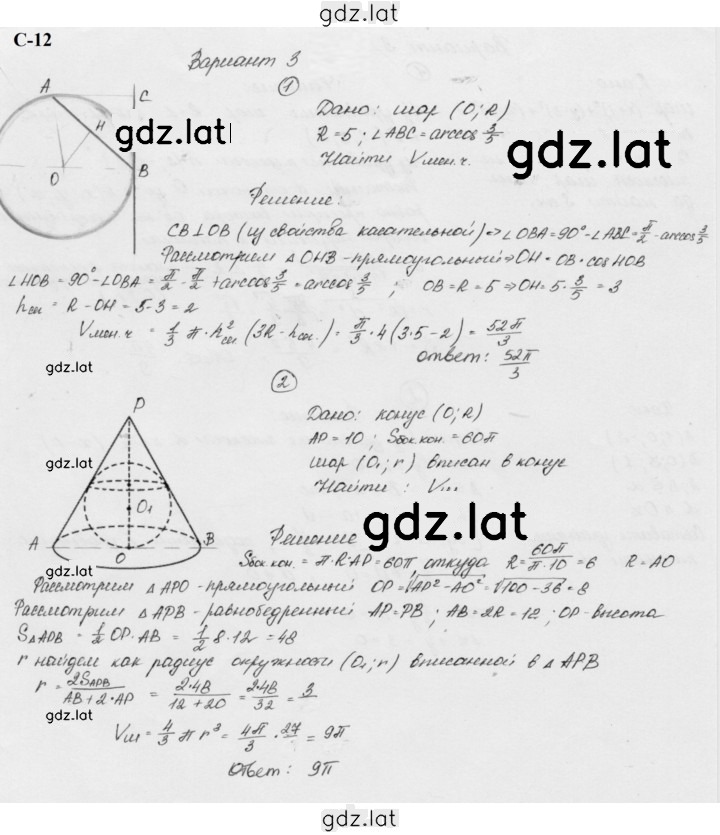 gdz.lat
С-12
Вариант 3
1
A
C
H
O
B
gdz.lat
Дано: шар (O; R)
R = 5 ; ∠ABC = arccos 3/5
Найти Vмен.ч.
gdz.lat
Решение:
CB⊥OB (из свойства касательной) ⇒ ∠OBA = 90° - ∠ABC = π/2 - arccos 3/5
Рассмотрим △OHB - прямоугольный ⇒ OH = OB · cos HOB
∠HOB = 90° - ∠OBA = π/2 - π/2 + arccos 3/5 = arccos 3/5 ; OB = R = 5 ⇒ OH = 5 · 3/5 = 3
hсег = R - OH = 5 - 3 = 2
Vмен.ч = 1/3 π · h²сег (3R - hсег.) = π/3 · 4 (3·5 - 2) = 52π/3
ответ: 52π/3
gdz.lat
2
P
O₁
A
O
B
gdz.lat
Дано: конус (O; R)
AP = 10 ; Sбок.кон. = 60π
шар (O₁; r) вписан в конус
Найти : Vш
gdz.lat
Решение
Sбок.кон. = π·R·AP = 60π, откуда R = 60π/π·10 = 6 R = AO
Рассмотрим △APO - прямоугольный OP = √AP² - AO² = √100 - 36 = 8
Рассмотрим △APB - равнобедренный AP = PB ; AB = 2R = 12 ; OP - высота
S△APB = 1/2 OP · AB = 1/2 8 · 12 = 48
r найдем как радиус окружности (O₁; r) вписанной в △APB
r = 2SAPB/AB + 2·AP = 2·48/12 + 20 = 2·48/32 = 3
gdz.lat
Vш = 4/3 π r³ = 4π/3 · 27 = 9π
Ответ: 9π
gdz.lat